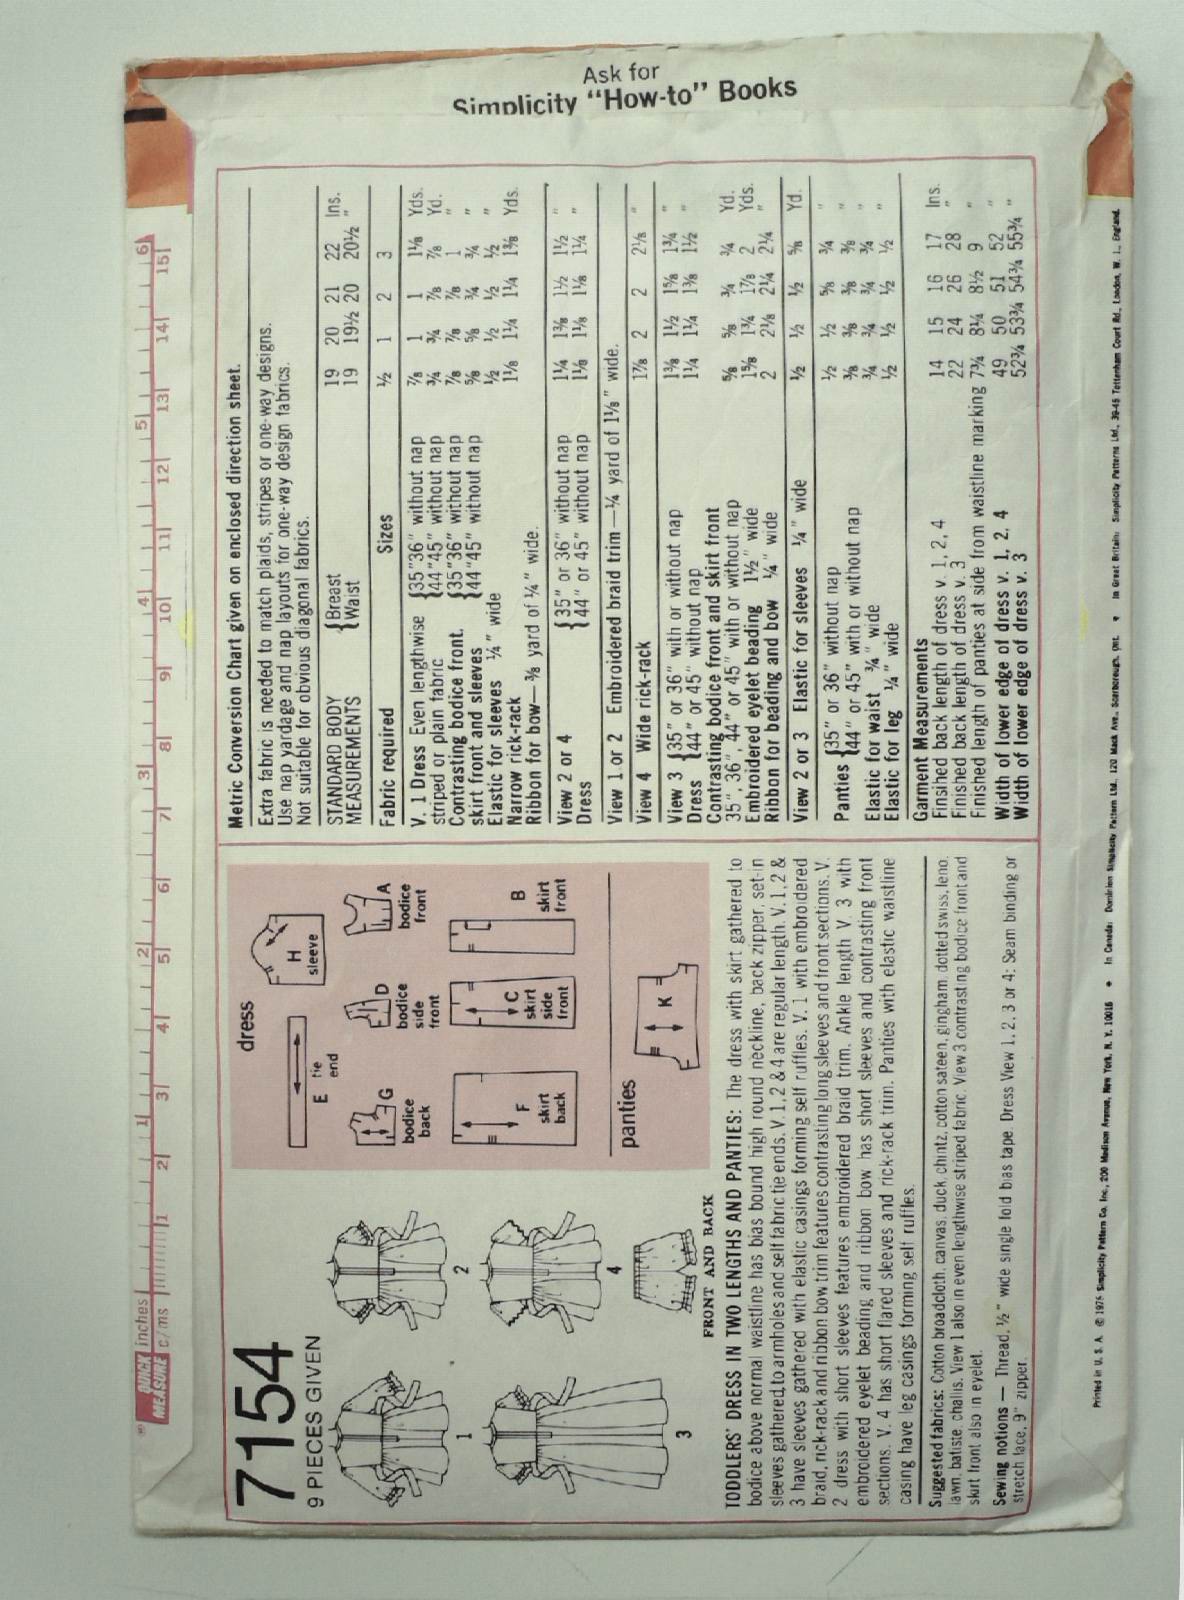 Ask for
Simplicity "How-to" Books
QUICK inches 1 2 3 4 5 6
MEASURE c/ms 1 2 3 4 5 6 7 8 9 10 11 12 13 14 15
7154
9 PIECES GIVEN
1
2
3
4
FRONT AND BACK
dress
E tie end
H sleeve
G bodice back
D bodice side front
A bodice front
F skirt back
C skirt side front
B skirt front
panties
K
TODDLERS' DRESS IN TWO LENGTHS AND PANTIES: The dress with skirt gathered to
bodice above normal waistline has bias bound high round neckline, back zipper, set-in
sleeves gathered to armholes and self fabric tie ends. V. 1, 2 & 4 are regular length. V. 1, 2 &
3 have sleeves gathered with elastic casings forming self ruffles. V. 1 with embroidered
braid, rick-rack and ribbon bow trim features contrasting long sleeves and front sections. V.
2 dress with short sleeves features embroidered braid trim. Ankle length V. 3 with
embroidered eyelet beading and ribbon bow has short sleeves and contrasting front
sections. V. 4 has short flared sleeves and rick-rack trim. Panties with elastic waistline
casing have leg casings forming self ruffles.
Suggested fabrics: Cotton broadcloth, canvas, duck, chintz, cotton sateen, gingham, dotted swiss, leno,
lawn, batiste, challis. View 1 also in even lengthwise striped fabric. View 3 contrasting bodice front and
skirt front also in eyelet.
Sewing notions — Thread, ½" wide single fold bias tape. Dress View 1, 2, 3 or 4: Seam binding or
stretch lace, 9" zipper.
Metric Conversion Chart given on enclosed direction sheet.
Extra fabric is needed to match plaids, stripes or one-way designs.
Use nap yardage and nap layouts for one-way design fabrics.
Not suitable for obvious diagonal fabrics.
STANDARD BODY {Breast 19 20 21 22 Ins.
MEASUREMENTS {Waist 19 19½ 20 20½ "
Fabric required Sizes ½ 1 2 3
V. 1 Dress Even lengthwise {35"36" without nap ⅞ 1 1 1⅛ Yds.
striped or plain fabric {44"45" without nap ¾ ¾ ⅞ ⅞ Yd.
Contrasting bodice front, {35"36" without nap ⅞ ⅞ ⅞ 1 "
skirt front and sleeves {44"45" without nap ⅝ ⅝ ¾ ¾ "
Elastic for sleeves ¼" wide ½ ½ ½ ½ "
Narrow rick-rack 1⅛ 1¼ 1¼ 1⅜ Yds.
Ribbon for bow—⅜ yard of ¼" wide.
View 2 or 4 {35" or 36" without nap 1¼ 1⅜ 1½ 1½ "
Dress {44" or 45" without nap 1⅛ 1⅛ 1⅛ 1¼ "
View 1 or 2 Embroidered braid trim—¼ yard of 1⅛" wide.
View 4 Wide rick-rack 1⅞ 2 2 2⅛ "
View 3 {35" or 36" with or without nap 1⅜ 1½ 1⅝ 1¾ "
Dress {44" or 45" without nap 1¼ 1¼ 1⅜ 1½ "
Contrasting bodice front and skirt front
35", 36", 44" or 45" with or without nap ⅝ ⅝ ¾ ¾ Yd.
Embroidered eyelet beading 1½" wide 1⅝ 1¾ 1⅞ 2 Yds.
Ribbon for beading and bow ¼" wide 2 2⅛ 2¼ 2¼ "
View 2 or 3 Elastic for sleeves ¼" wide ½ ½ ½ ⅝ Yd.
Panties {35" or 36" without nap ½ ½ ⅝ ¾ "
{44" or 45" with or without nap ⅜ ⅜ ⅜ ⅜ "
Elastic for waist ¾" wide ¾ ¾ ¾ ¾ "
Elastic for leg ¼" wide ½ ½ ½ ½ "
Garment Measurements
Finished back length of dress v. 1, 2, 4 14 15 16 17 Ins.
Finished back length of dress v. 3 22 24 26 28 "
Finished length of panties at side from waistline marking 7¾ 8¼ 8½ 9 "
Width of lower edge of dress v. 1, 2, 4 49 50 51 52 "
Width of lower edge of dress v. 3 52¾ 53¾ 54¾ 55¾ "
Printed in U. S. A. © 1975 Simplicity Pattern Co. Inc., 200 Madison Avenue, New York, N. Y. 10016 • In Canada: Dominion Simplicity Pattern Ltd., 120 Mack Ave., Scarborough, Ont. • In Great Britain: Simplicity Patterns Ltd., 39-45 Tottenham Court Rd., London, W. 1., England.